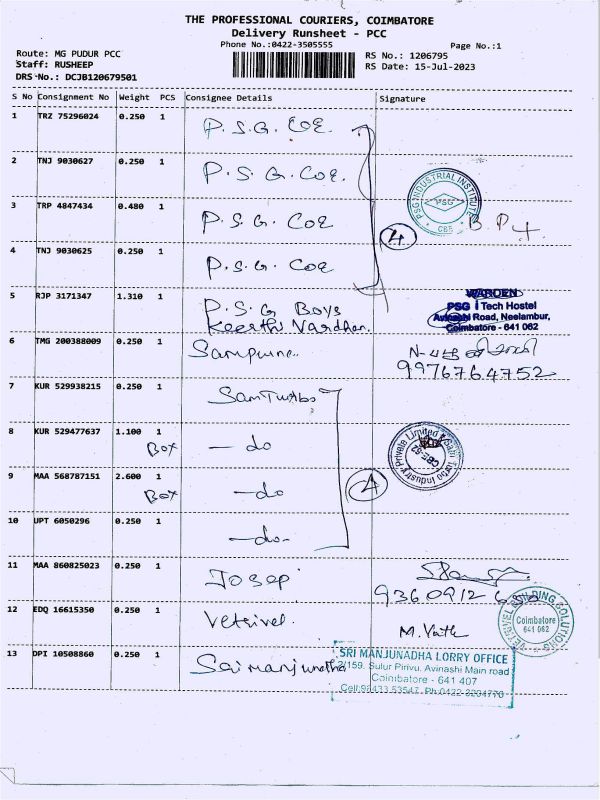 THE PROFESSIONAL COURIERS, COIMBATORE
Delivery Runsheet - PCC
Phone No.:0422-3505555
Page No.:1
Route: MG PUDUR PCC
RS No.: 1206795
Staff: RUSHEEP
RS Date: 15-Jul-2023
DRS No.: DCJB120679501
S No Consignment No Weight PCS Consignee Details Signature
1 TRZ 75296024 0.250 1 P.S.G. COE.
2 TNJ 9030627 0.250 1 P.S.G. COE.
PSG INDUSTRIAL INSTITUTE
PSG
CBE
3 TRP 4847434 0.480 1 P.S.G. COE
4
4 TNJ 9030625 0.250 1 P.S.G. COE
5 RJP 3171347 1.310 1 P.S.G BOYS
Keerthi Vardhan.
WARDEN
PSG i Tech Hostel
Avinashi Road, Neelambur,
Coimbatore - 641 062
6 TMG 200388009 0.250 1
9976764752
7 KUR 529938215 0.250 1
8 KUR 529477637 1.100 1 - do
Box
9 MAA 568787151 2.600 1 - do
Box
4
10 UPT 6050296 0.250 1 - do -
11 MAA 860825023 0.250 1 Josep
12 EDQ 16615350 0.250 1 Vetrivel
VETRIVEL BUILDING SOLUTIONS
Coimbatore
641 062
13 DPI 10508860 0.250 1 Sai manjunatha
SRI MANJUNADHA LORRY OFFICE
2/159, Sulur Pirivu, Avinashi Main road
Coimbatore - 641 407